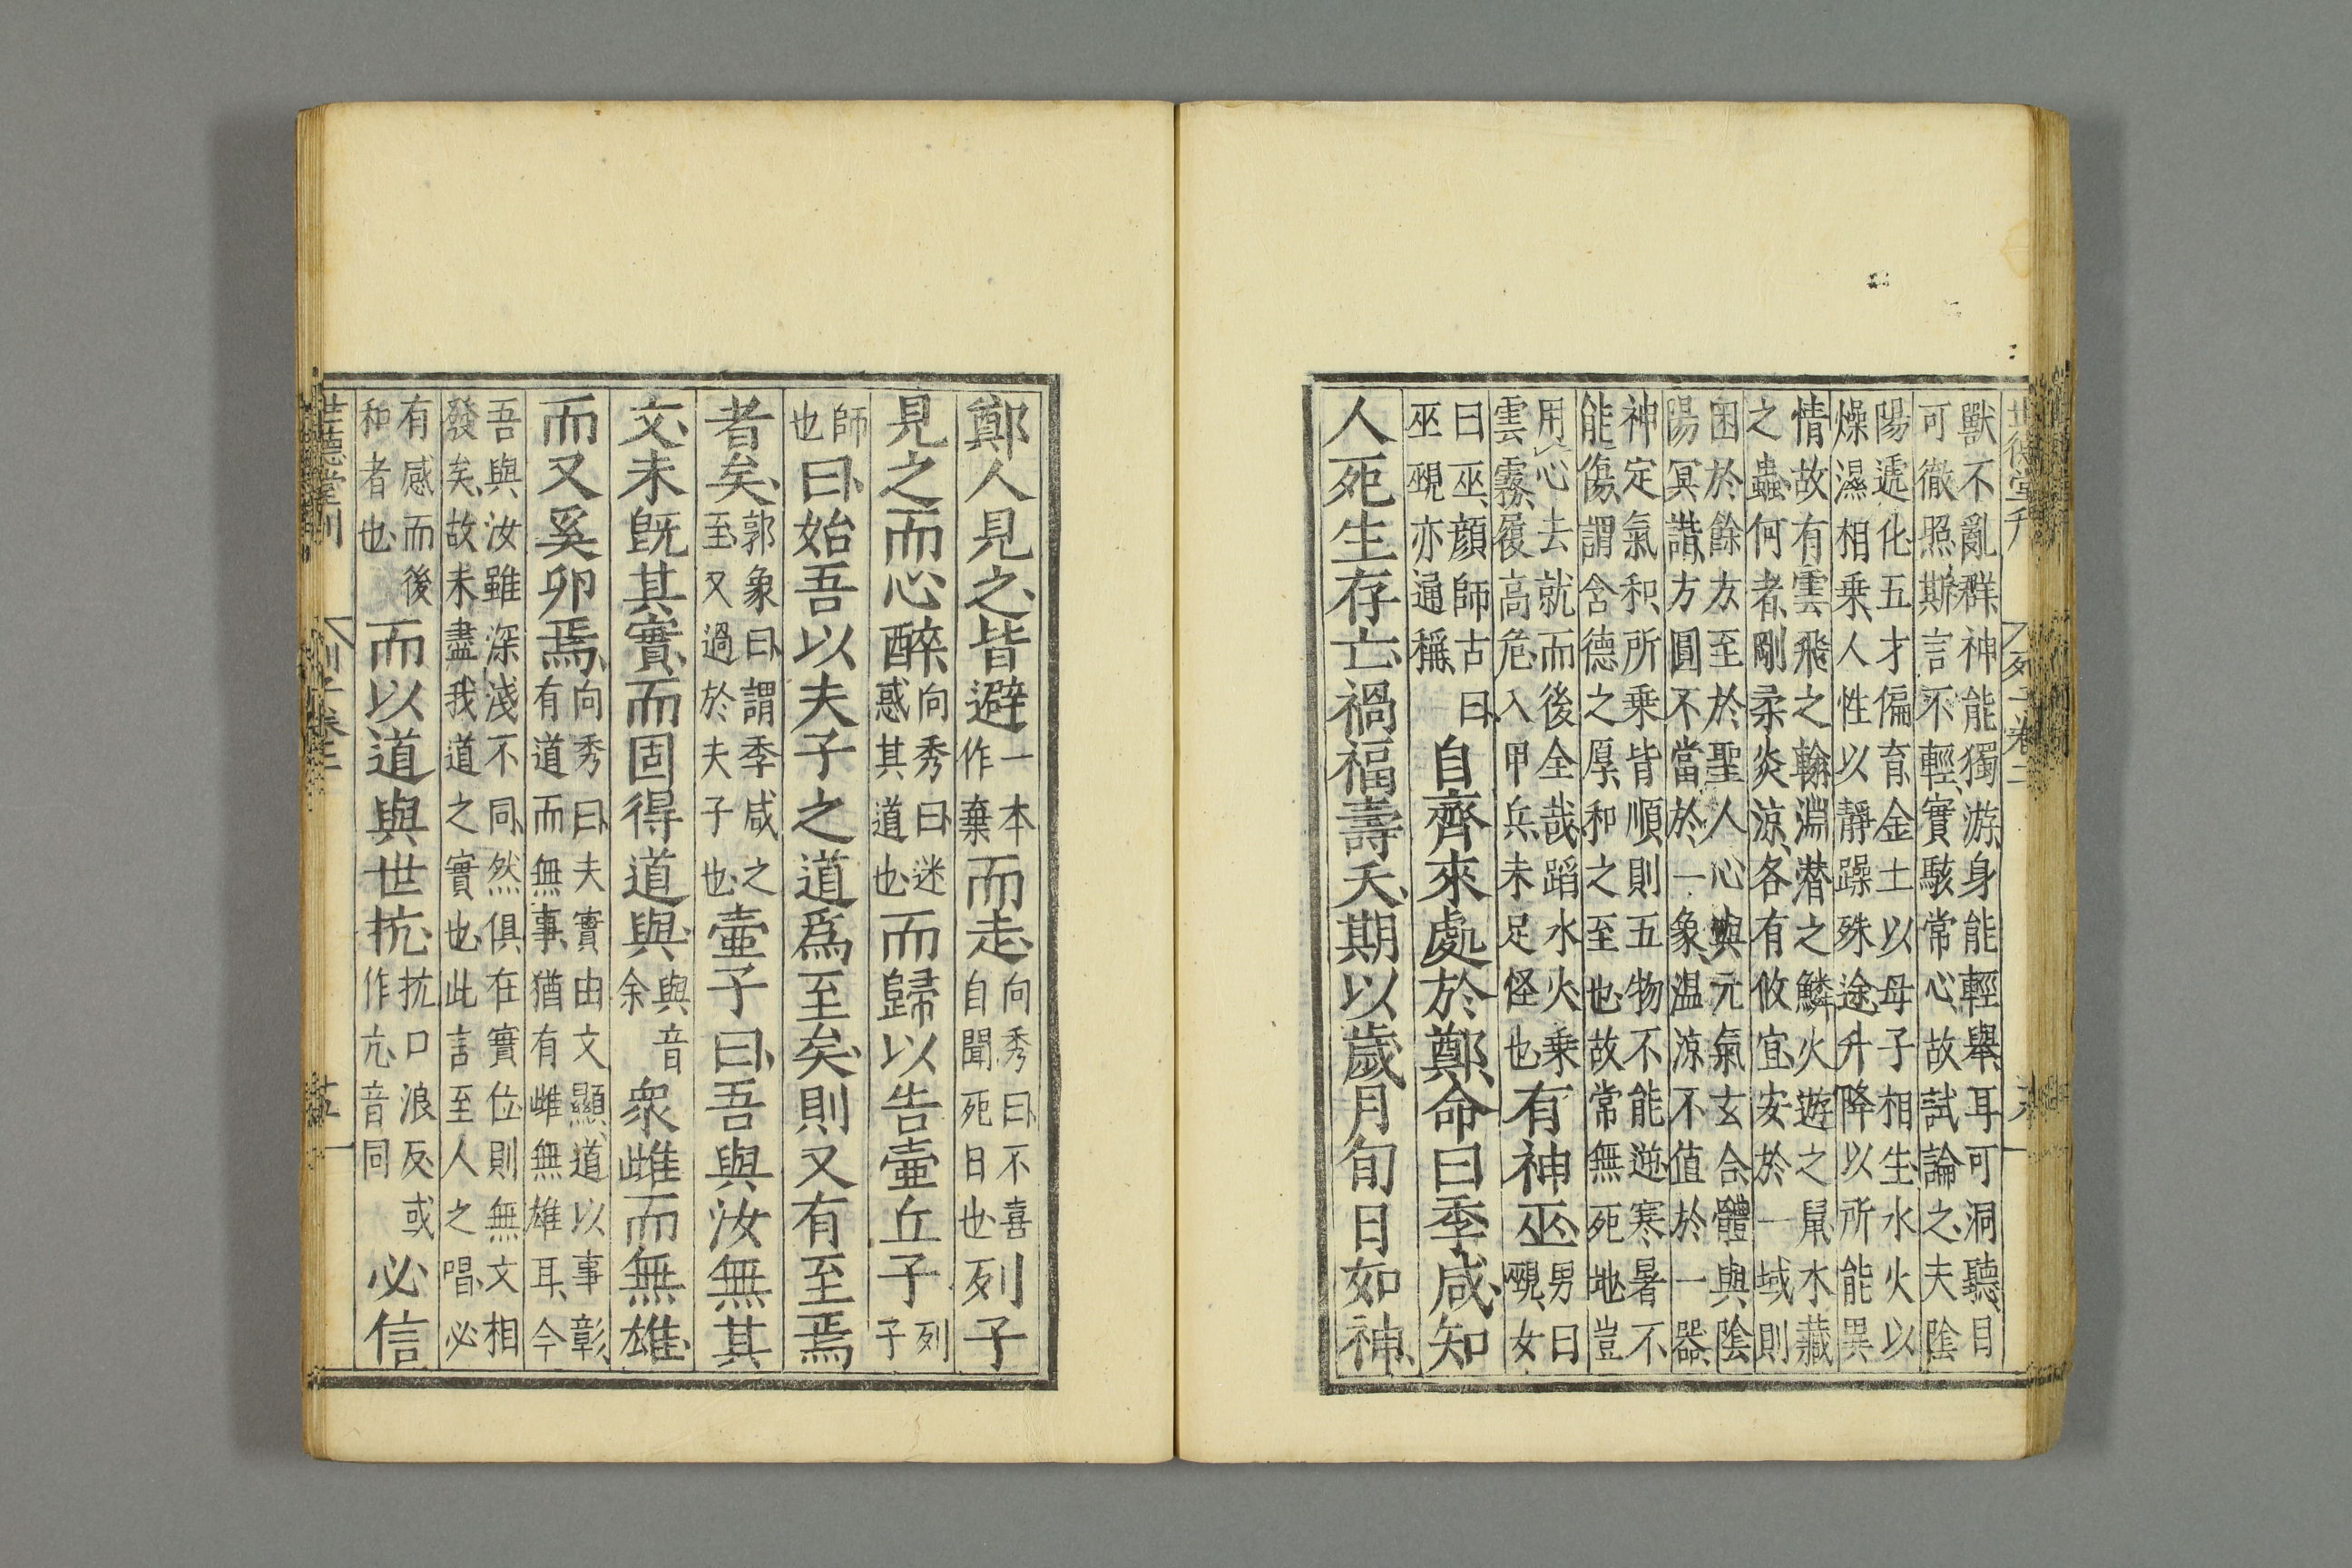 世德堂刊 列子卷二
獸不亂群神能獨游身能輕舉耳可洞聽目
可徹照斯言不輕實駭常心故試論之夫陰
陽遞化五才偏育金土以母子相生水火以
燥濕相乗人性以靜躁殊途升降以所能異
情故有雲飛之翰淵潜之鱗火遊之鼠木藏
之蟲何者剛柔炎涼各有攸宜安於一域則
困於餘方至於聖人心與元氣玄合體與陰
陽冥諧方圓不當於一象温涼不值於一器
神定氣和所乗皆順則五物不能逆寒暑不
能傷謂含德之厚和之至也故常無死地豈
用心去就而後全哉蹈水火乗雲霧履高危入甲兵未足怪也有神巫男曰覡女
曰巫顏師古曰巫覡亦通稱自齊來處於鄭命曰季咸知
人死生存亡禍福壽夭期以歲月旬日如神
鄭人見之皆避一本作棄而走向秀曰不喜自聞死日也列子
見之而心醉向秀曰迷惑其道也而歸以告壷丘子列子
師也曰始吾以夫子之道爲至矣則又有至焉
者矣郭象曰謂季咸之至又過於夫子也壷子曰吾與汝無其
文未既其實而固得道與與音余衆雌而無雄
而又奚卵焉向秀曰夫實由文顯道以事彰有道而無事猶有雌無雄耳今
吾與汝雖深淺不同然俱在實位則無文相
發矣故未盡我道之實也此言至人之唱必
有感而後和者也而以道與世抗抗口浪反或作亢音同必信
世德堂刊 列子卷二 十五